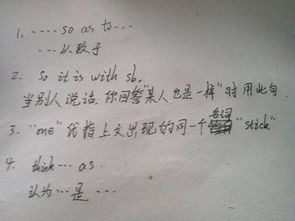 1. .... so as to ...
... 以致于
2. So it is with sb.
当别人说话, 你回答某人也是一样"时用此句.
名词
3. "one" 代指上文出现的同一个 "stick"
4. think ... as
认为 ... 是 ...